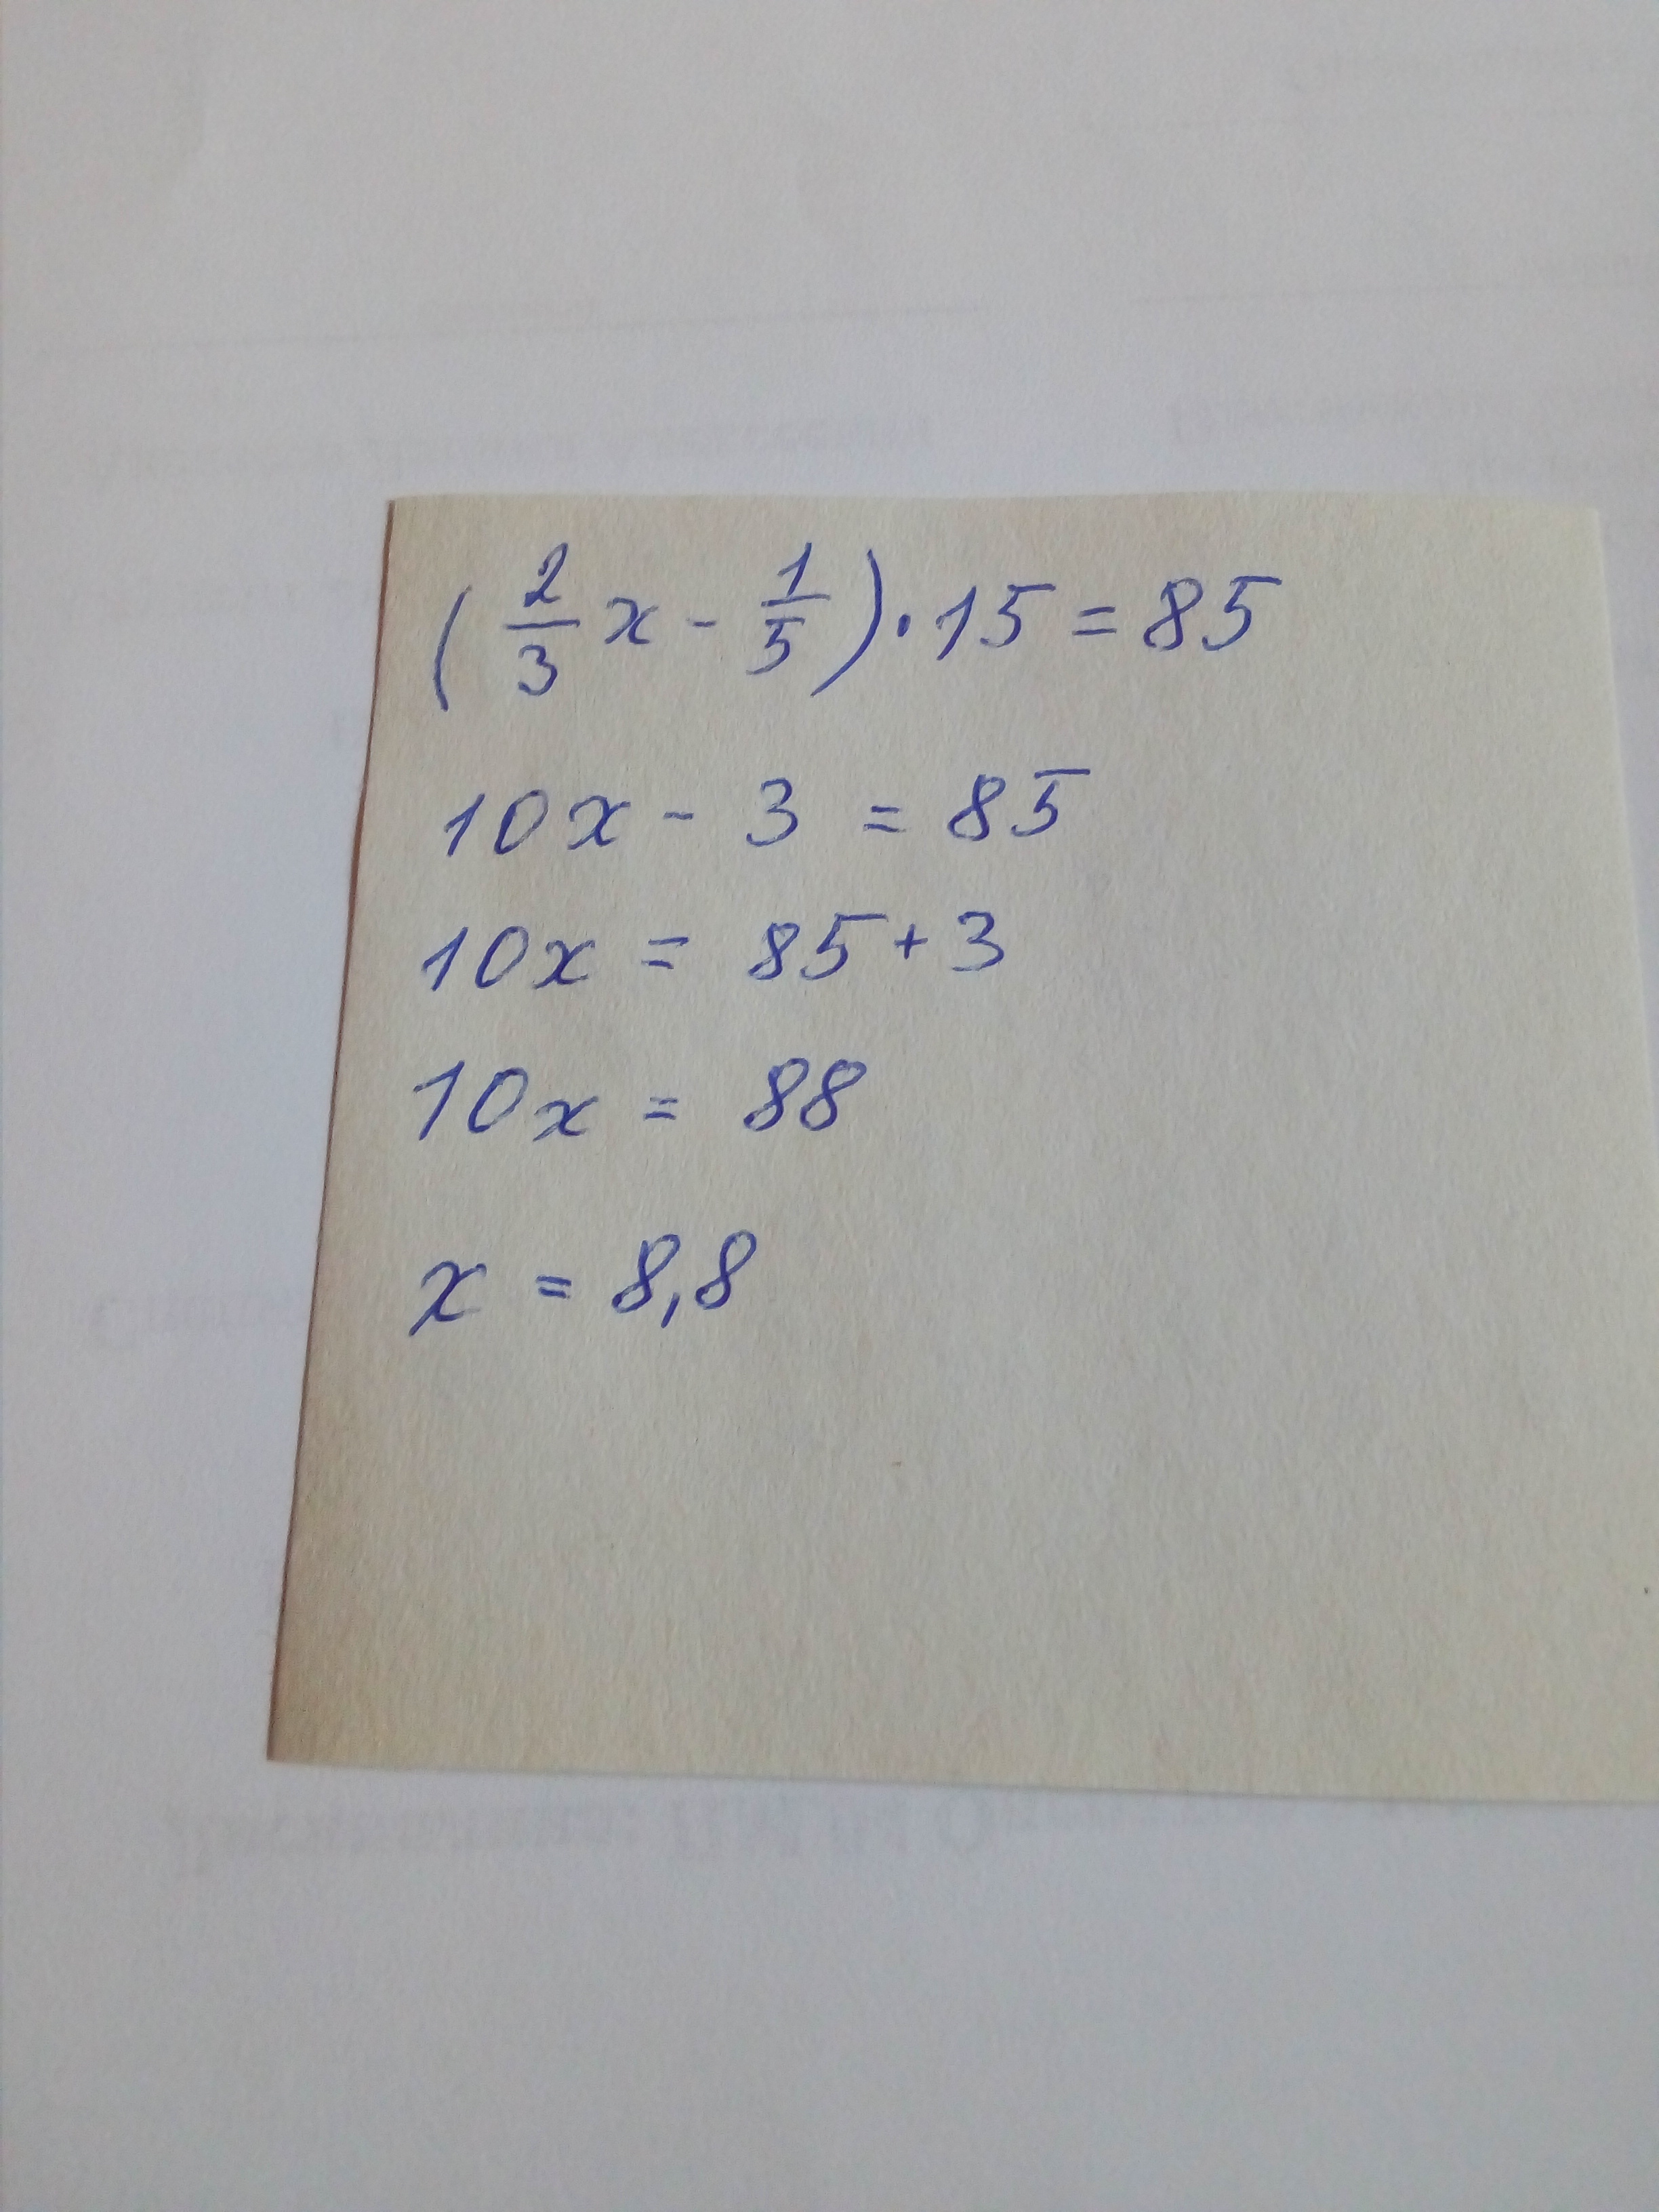 (2/3 x - 1/5) · 15 = 85
10x - 3 = 85
10x = 85 + 3
10x = 88
x = 8,8